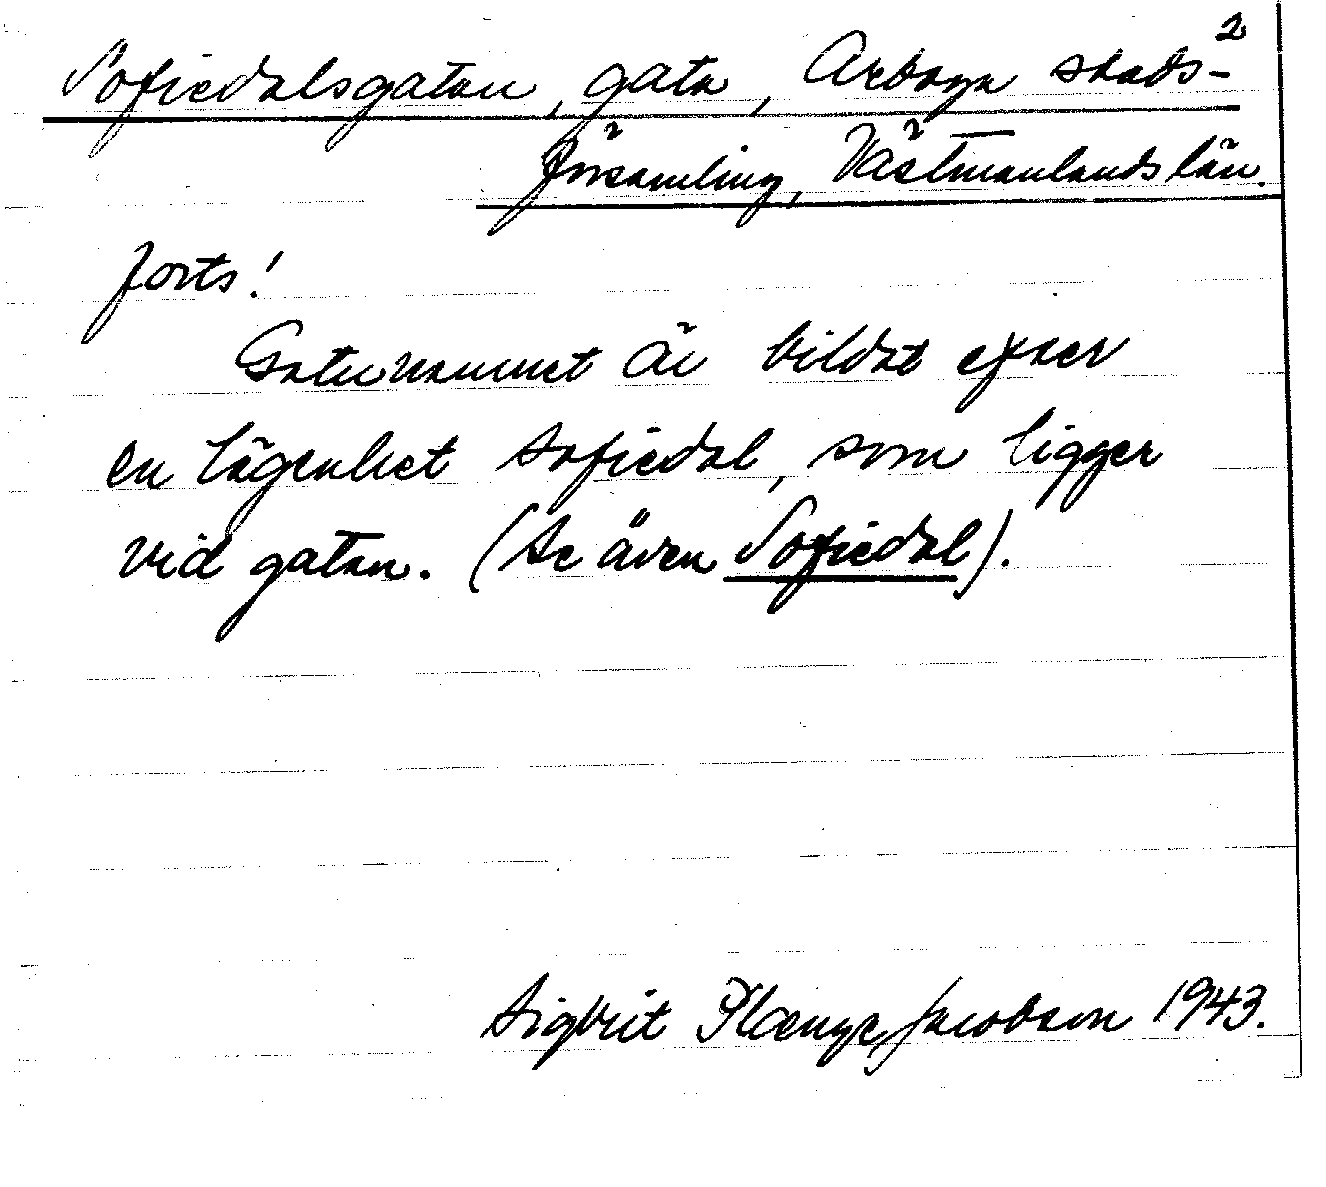 2
Sofiedalsgatan, gata, Arboga stads-
församling, Västmanlands län.
forts!
Gatunamnet är bildat efter
en lägenhet Sofiedal, som ligger
vid gatan. (Se även Sofiedal).
Sigbrit Plænge Jacobson 1943.